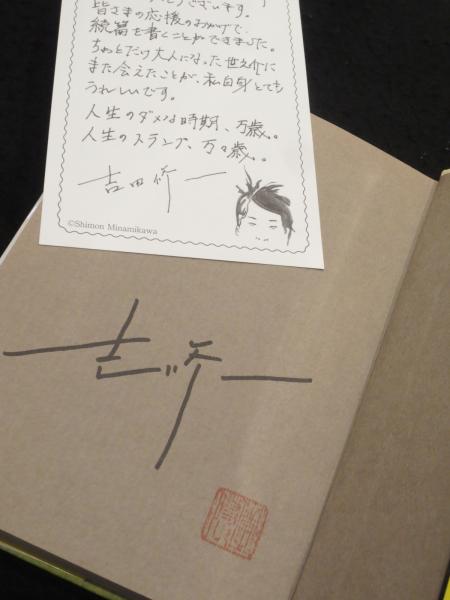 うございます。
皆さまの応援のおかげで、
続篇を書くことができました。
ちょっとだけ大人になった世之介に
また会えたことが、私自身とても
うれしいです。
人生のダメな時期、万歳。
人生のスランプ、万々歳。
吉田修一
©Shimon Minamikawa
吉田修一